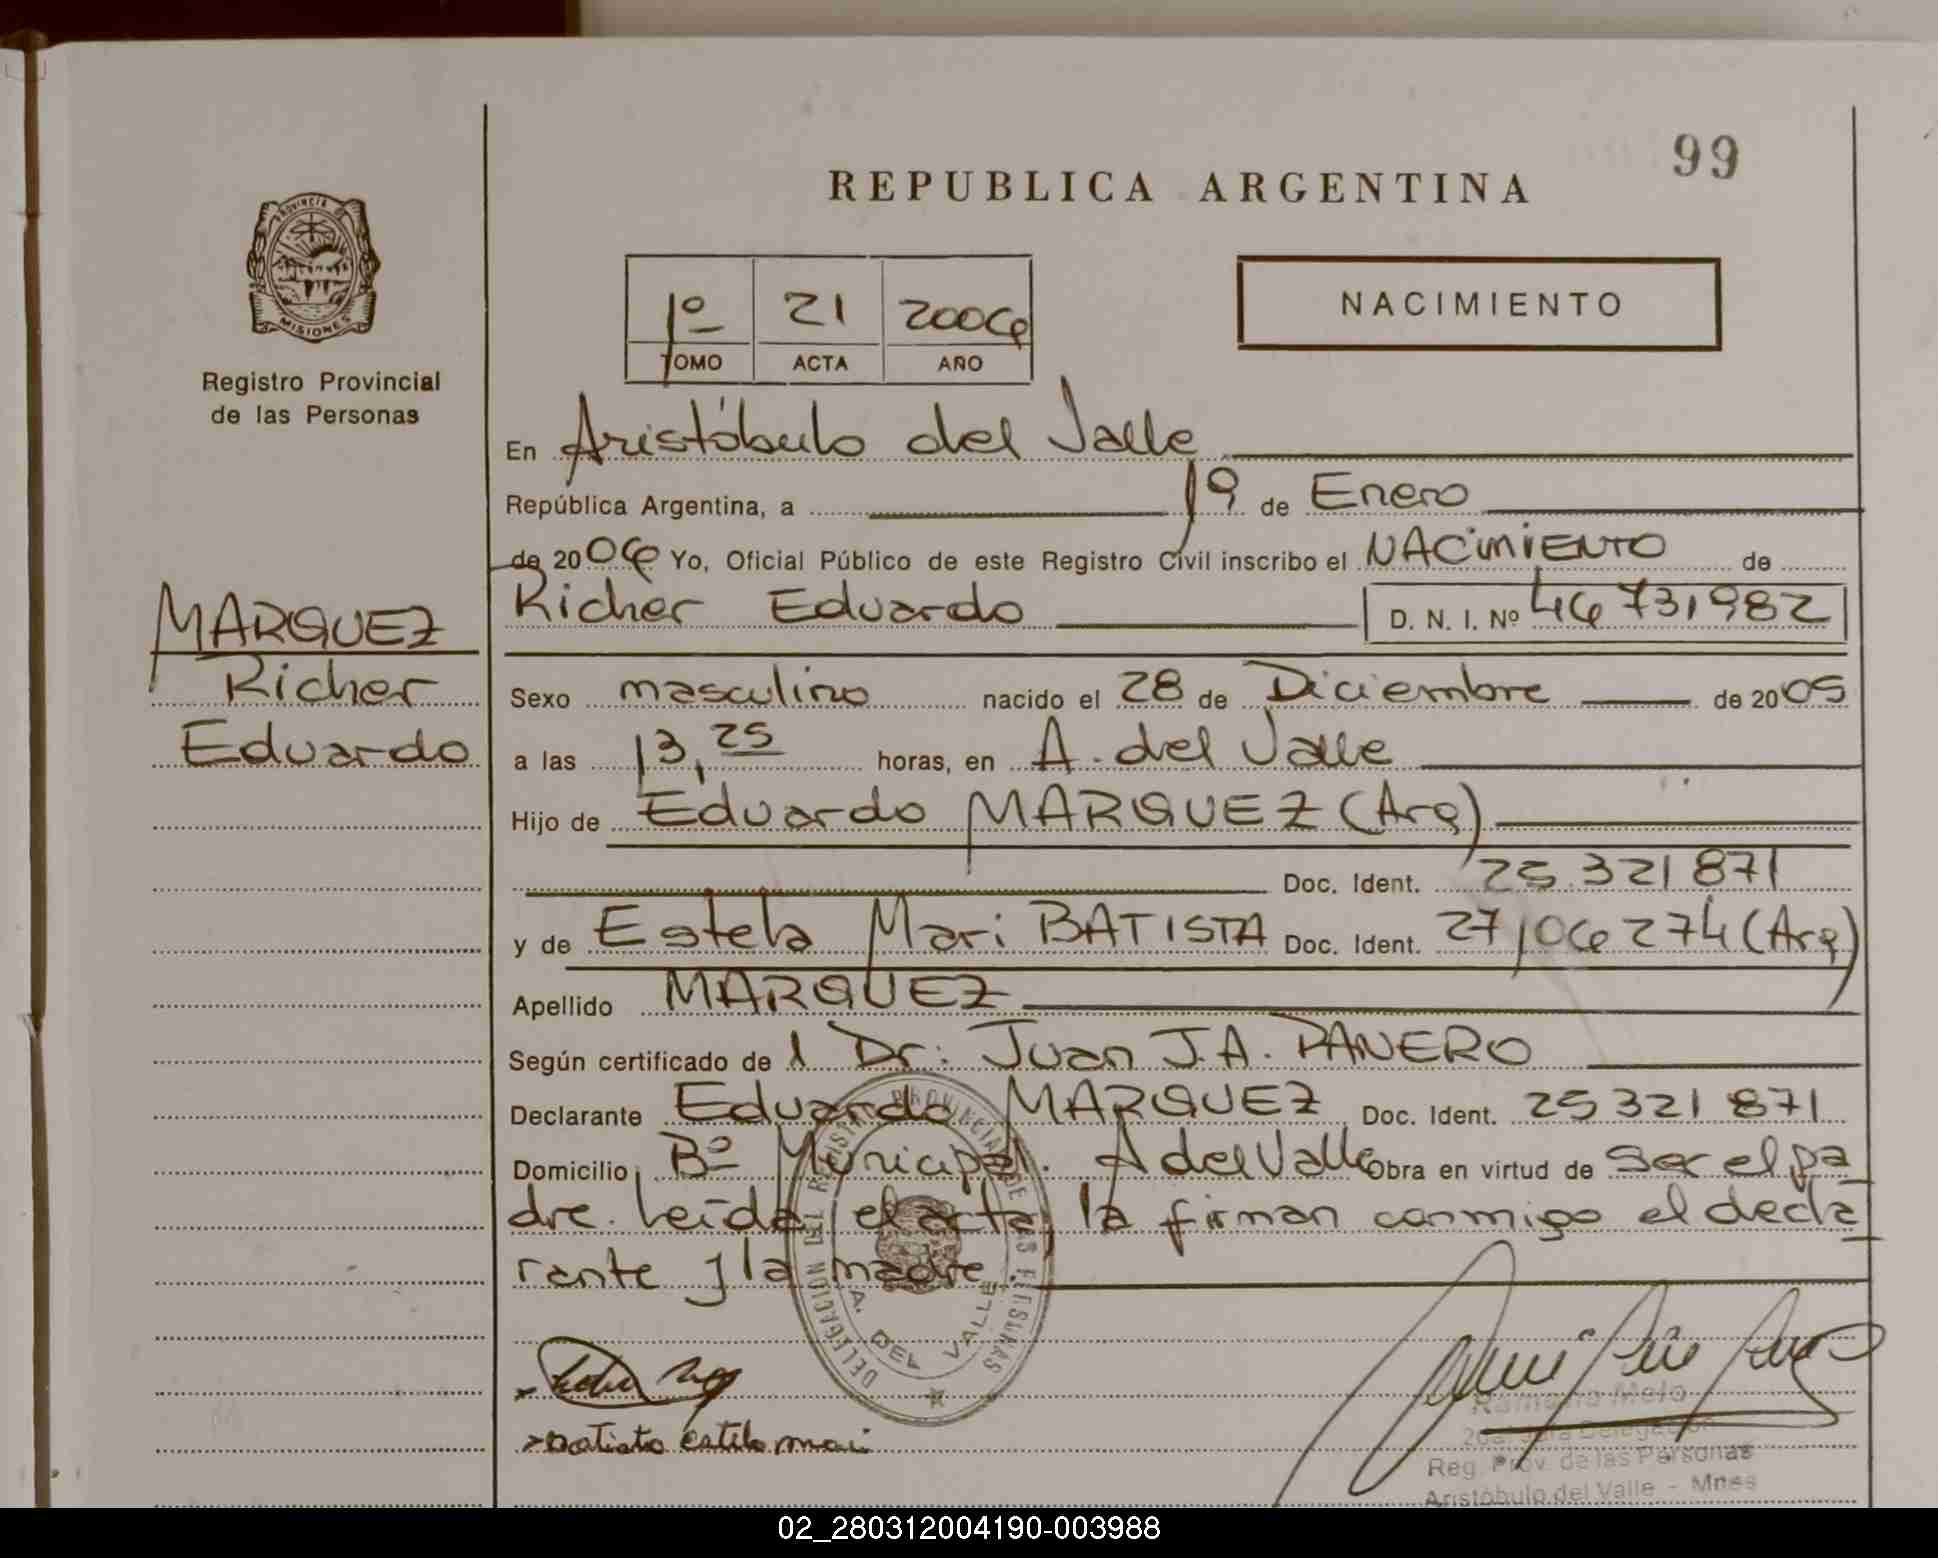 99
REPUBLICA ARGENTINA
PROVINCIA DE
MISIONES
Registro Provincial
de las Personas
1º 21 2006
TOMO ACTA AÑO
NACIMIENTO
En Aristóbulo del Valle
República Argentina, a 19 de Enero
de 2006 Yo, Oficial Público de este Registro Civil inscribo el NACIMIENTO de
MARQUEZ
Richer
Eduardo
Richer Eduardo D. N. I. Nº 46 731982
Sexo masculino nacido el 28 de Diciembre de 2005
a las 13,25 horas, en A. del Valle
Hijo de Eduardo MARQUEZ (Arg)
Doc. Ident. 25.321 871
y de Estela Mari BATISTA Doc. Ident. 27106274 (Arg)
Apellido MARQUEZ
Según certificado de l Dr: Juan J.A. PANERO
Declarante Eduardo MARQUEZ Doc. Ident. 25 321 871
Domicilio Bº Municipal. A del Valle Obra en virtud de ser el pa
dre. Leída el acta, la firman conmigo el decla
rante y la madre.
DELEGACION DEL REGISTRO PROVINCIAL DE LAS PERSONAS
A. DEL VALLE
Batista estela mari
Ramona Melo
Delegación
Reg. Prov. de las Personas
Aristóbulo del Valle - Mnes
02_280312004190-003988